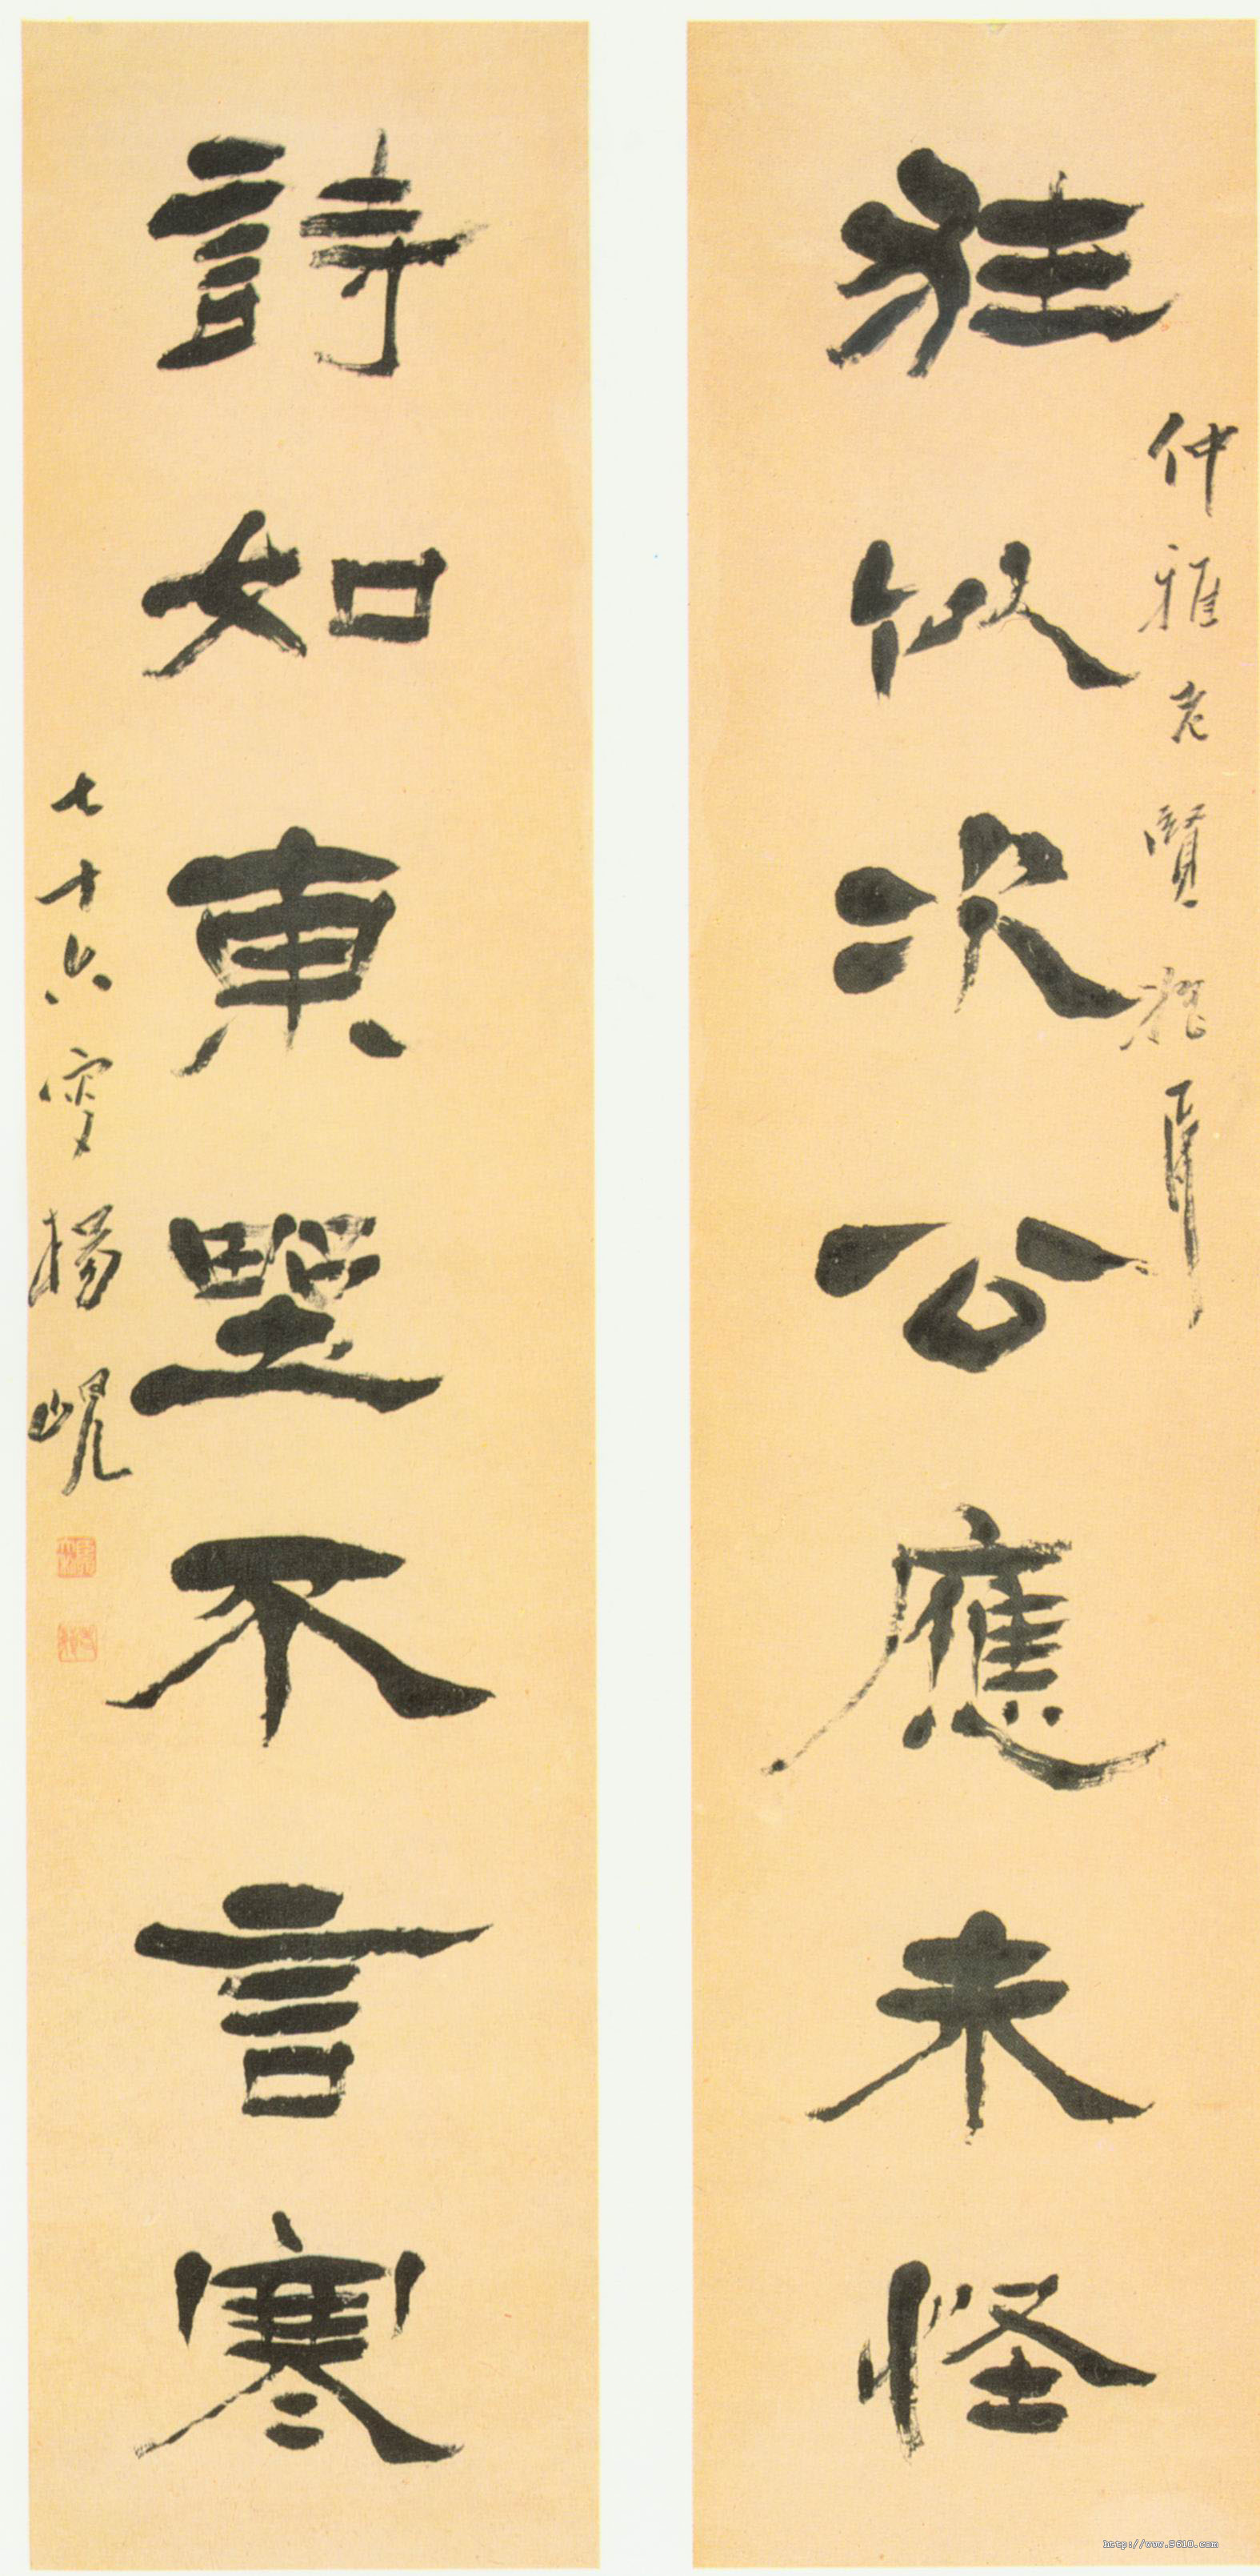 仲雅老賢雅屬
狂似次公應未怪
詩如東埜不言寒
七十六叟楊峴
http://www.9610.com